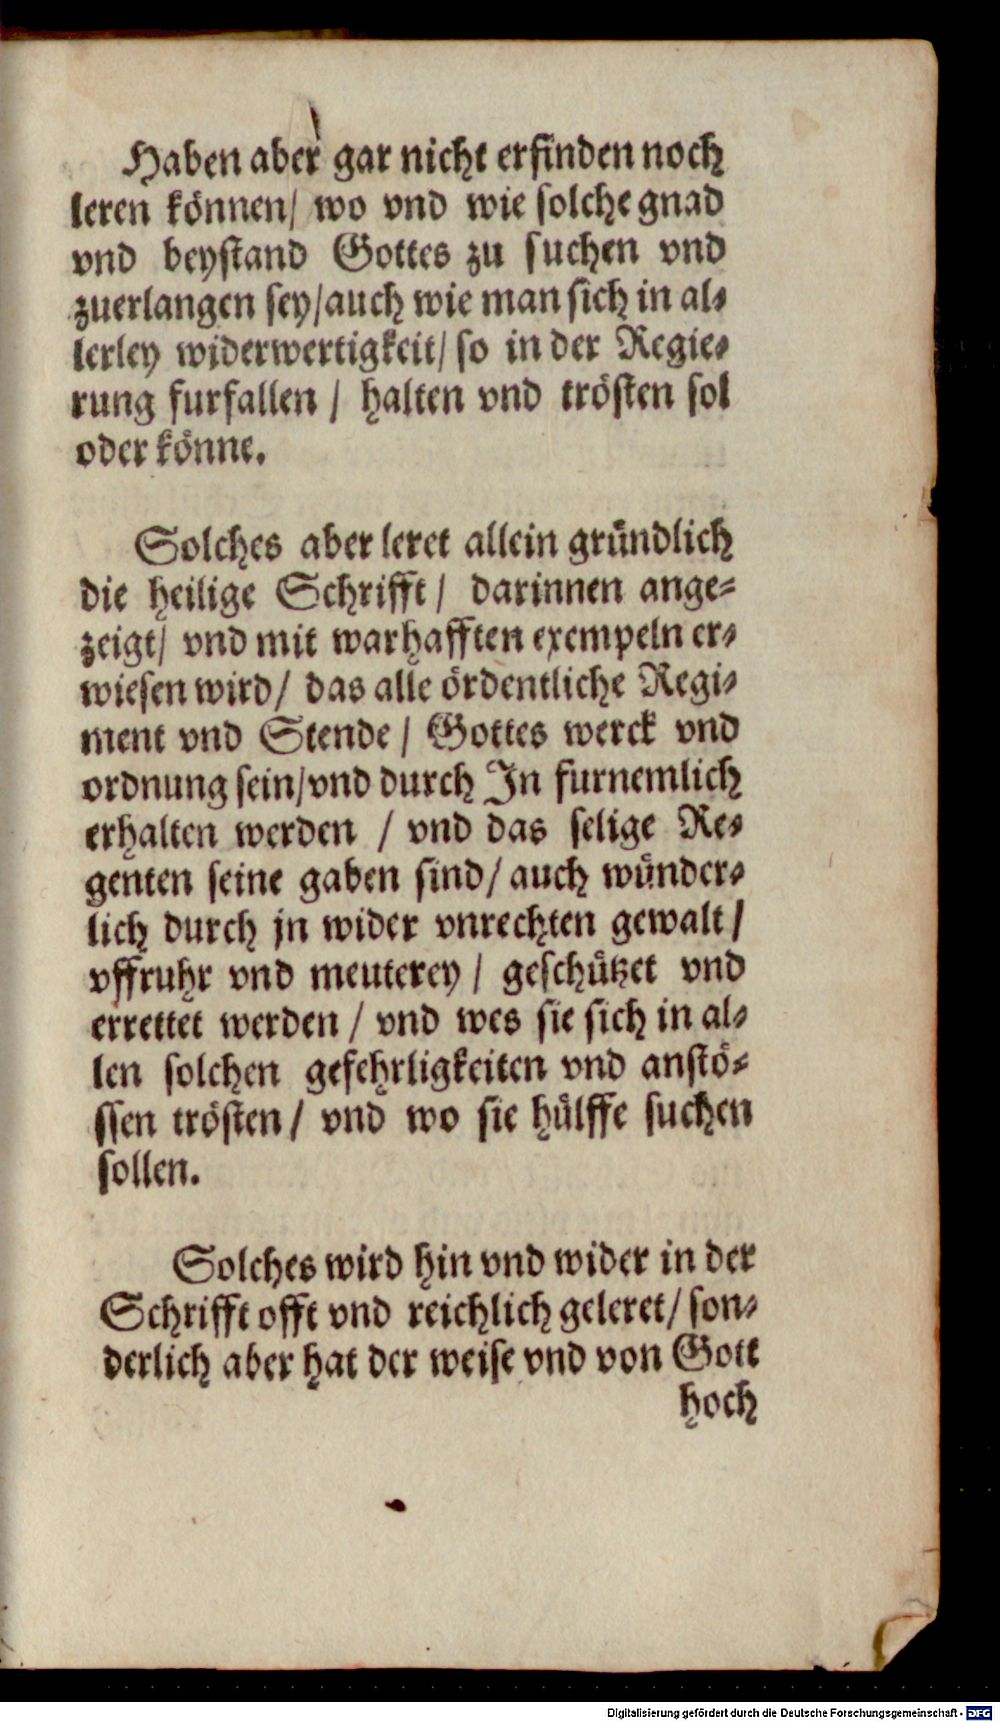 Haben aber gar nicht erfinden noch
leren können/ wo vnd wie solche gnad
vnd beystand Gottes zu suchen vnd
zuerlangen sey/auch wie man sich in al-
lerley widerwertigkeit/ so in der Regie-
rung furfallen / halten vnd trösten sol
oder könne.
Solches aber leret allein gründlich
die heilige Schrifft/ darinnen ange-
zeigt/ vnd mit warhafften exempeln er-
wiesen wird/ das alle ördentliche Regi-
ment vnd Stende/ Gottes werck vnd
ordnung sein/vnd durch In furnemlich
erhalten werden / vnd das selige Re-
genten seine gaben sind/ auch wünder-
lich durch jn wider vnrechten gewalt/
vffruhr vnd meuterey/ geschützet vnd
errettet werden/ vnd wes sie sich in al-
len solchen gefehrligkeiten vnd anstö-
ssen trösten/ vnd wo sie hülffe suchen
sollen.
Solches wird hin vnd wider in der
Schrifft offt vnd reichlich geleret/ son-
derlich aber hat der weise vnd von Gott
hoch
Digitalisierung gefördert durch die Deutsche Forschungsgemeinschaft - DFG